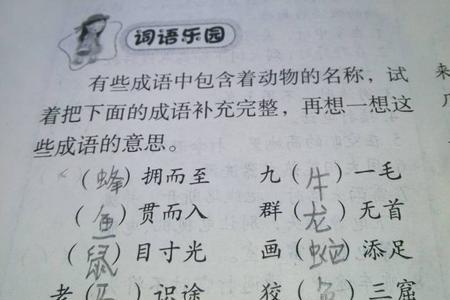 词语乐园
有些成语中包含着动物的名称，试
着把下面的成语补充完整，再想一想这
些成语的意思。
（蜂）拥而至 九（牛）一毛
（鱼）贯而入 群（龙）无首
（鼠）目寸光 画（蛇）添足
老（马）识途 狡（兔）三窟
来